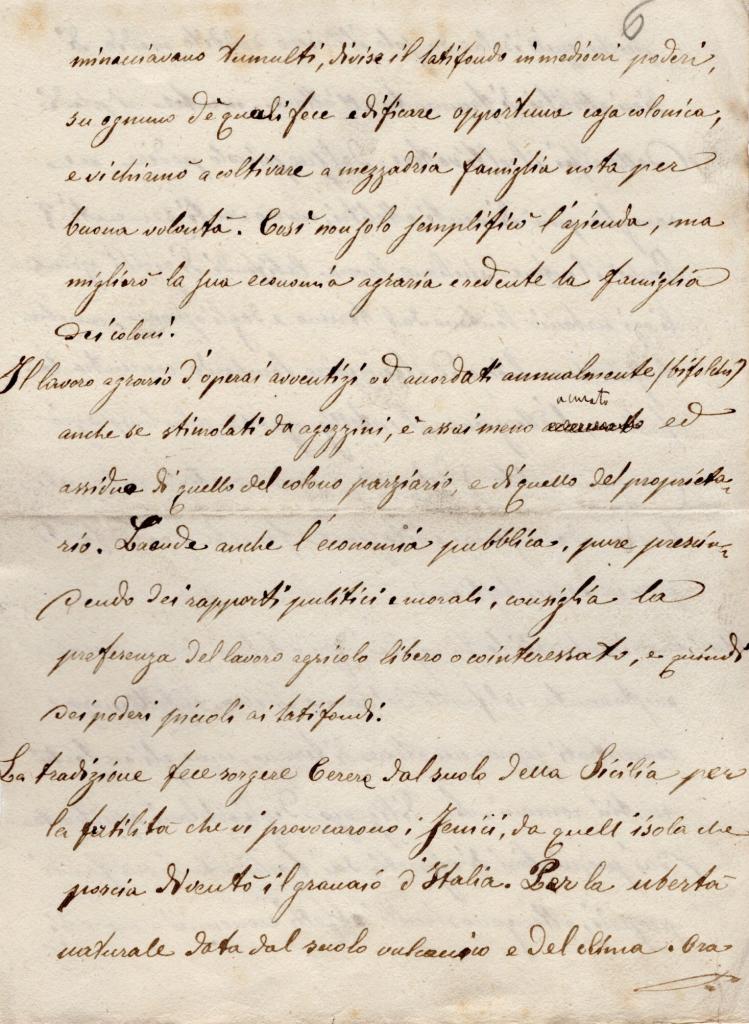 6
minacciavano tumulti, divise il latifondo in mediocri poderi,
su ognuno de quali fece edificare opportuna casa colonica,
e vi chiamò a coltivare a mezzadria famiglia nota per
buona volontà. Così non solo semplificò l'azienda, ma
migliorò la sua economia agraria e redente la famiglia
dei coloni.
Il lavoro agrario d'operai avventizi od accordati annualmente (bifolchi)
anche se stimolati da agozzini, è assai meno acurato ed
assiduo di quello del colono parziario, e di quello del proprieta-
rio. Laonde anche l'economia pubblica, pure prescin-
dendo dei rapporti pulitici e morali, consiglia la
preferenza del lavoro agricolo libero o cointeressato, e quindi
dei poderi piccoli ai latifondi.
La tradizione fece sorgere Cerere dal suolo della Sicilia per
la fertilità che vi provocarono i Fenici, da quell'isola che
poscia diventò il granaio d'Italia. Per la ubertà
naturale data dal suolo vulcanico e del clima. Ora